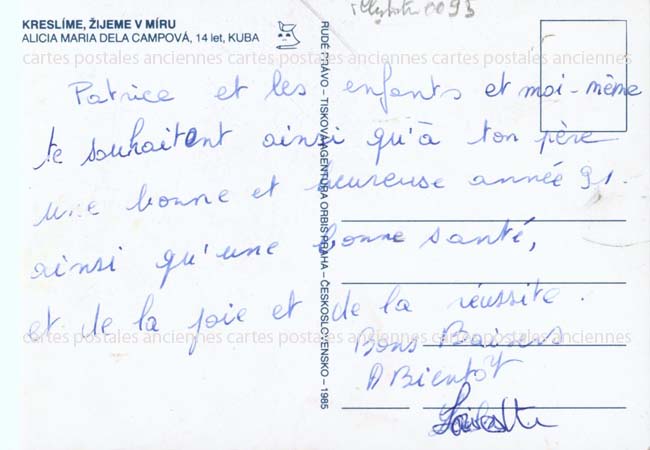 KRESLÍME, ŽIJEME V MÍRU
ALICIA MARIA DELA CAMPOVÁ, 14 let, KUBA
0095
cartes postales anciennes cartes postales anciennes cartes postales anciennes
Patrice et les enfants et moi-même
te souhaitent ainsi qu'à ton père
une bonne et heureuse année 91.
ainsi qu'une bonne santé,
et de la joie et de la réussite.
cartes postales anciennes cartes postales anciennes cartes postales anciennes
Bons Baisers
A Bientôt
RUDÉ PRÁVO – TISKOVÁ AGENTURA ORBIS PRAHA – ČESKOSLOVENSKO – 1985